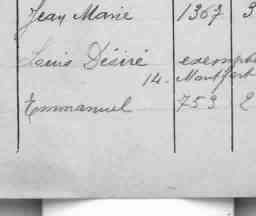 Jean Marie 1307 3
Louis Désiré exempté
14. Montfort
Emmanuel 753 2